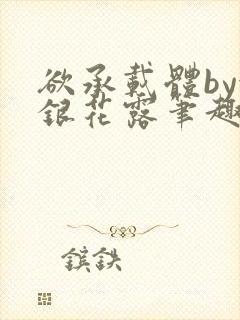 欲承載體by
銀花露筆趣
鑌鉄